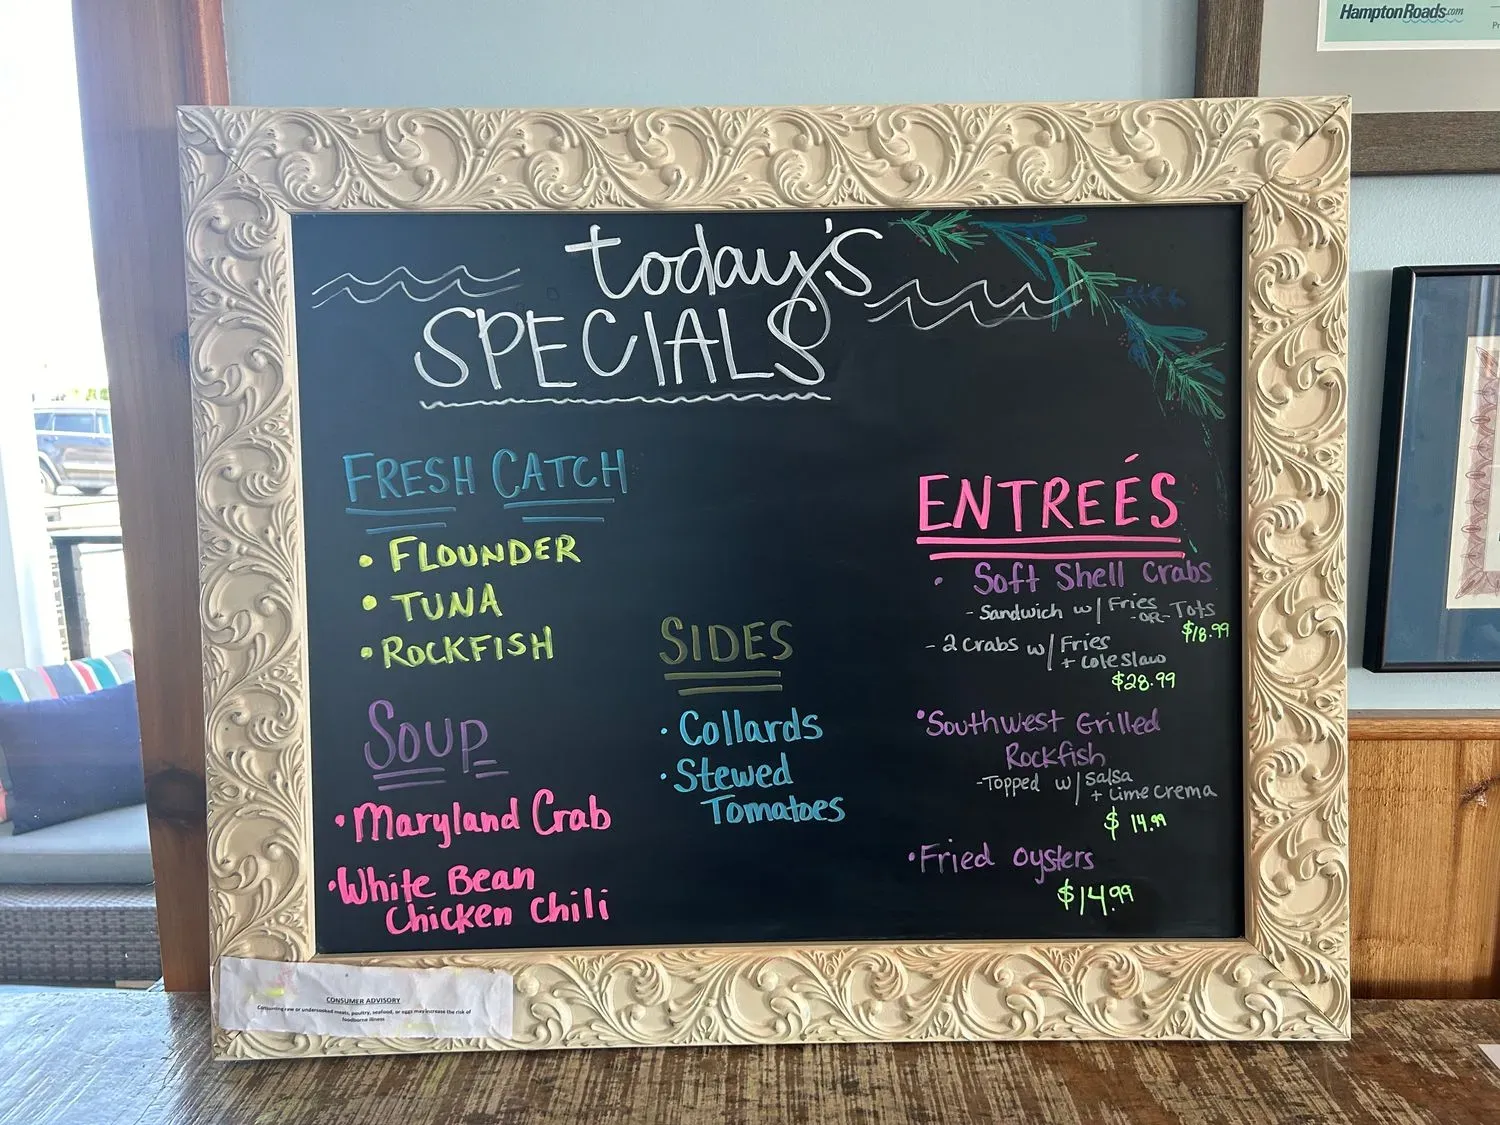 HamptonRoads.com
today's
SPECIALS
FRESH CATCH
• FLOUNDER
• TUNA
• ROCKFISH
SOUP
• Maryland Crab
• White Bean
Chicken Chili
SIDES
• Collards
• Stewed
Tomatoes
ENTREÉS
• Soft Shell Crabs
- Sandwich w/ Fries -OR- Tots
$18.99
- 2 Crabs w/ Fries
+ Coleslaw
$28.99
• Southwest Grilled
Rockfish
- Topped w/ Salsa
+ Lime Crema
$ 14.99
• Fried Oysters
$14.99
CONSUMER ADVISORY
Consuming raw or undercooked meats, poultry, seafood, or eggs may increase the risk of
foodborne illness